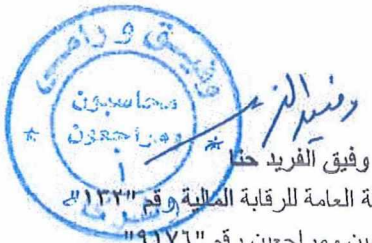 وفيق و رامى
محاسبون
ومراجعون
وفيق الفريد حنا
ة العامة للرقابة المالية رقم "١٣٢"
ين ومراجعين رقم "٩١٧٦"